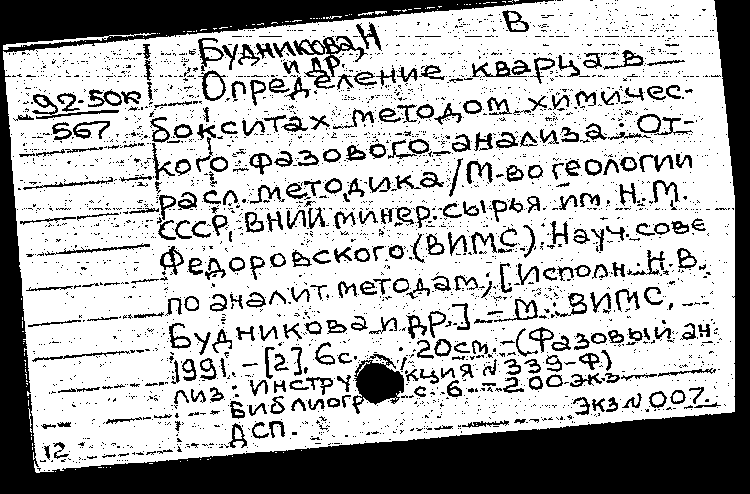 В
Будникова, Н
и др.
92-50к
567
Определение кварца в
бокситах методом химичес-
кого фазового анализа: От-
расл. методика / М-во геологии
СССР, ВНИИ минер. сырья им. Н.М.
Федоровского (ВИМС). Науч. сове
по аналит. методам; [Исполн. Н.В.
Будникова и др.]. - М.: ВИМС,
1991. - [2], 6с. ; 20см. - (Фазовый ан
лиз: инструкция N 339-Ф)
Библиогр с. 6. - 200 экз
ДСП. Экз N 007.
12